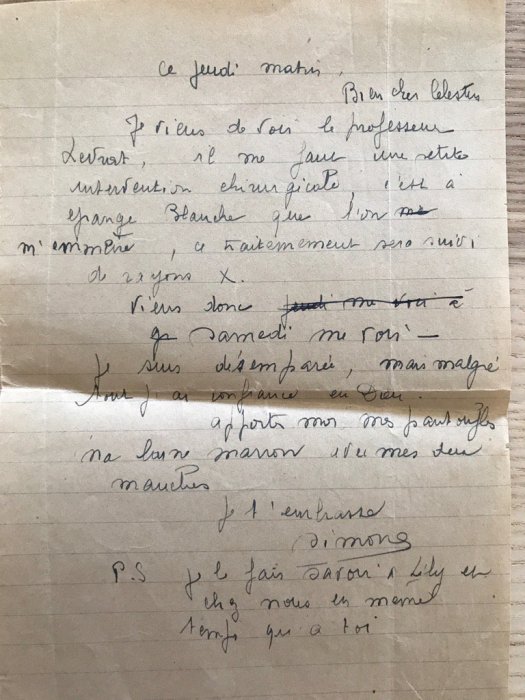 Ce jeudi matin,
Bien cher Célestin
Je viens de voir le professeur
Levrat, il me faut une petite
intervention chirurgicale, c'est à
grange Blanche que l'on me
m'emmène, ce traitemement sera suivi
de rayons X.
Viens donc jeudi me voir à
samedi me voir —
Je suis désemparée, mais malgré
tout j'ai confiance en Dieu.
apporte moi mes pantoufles
ma laine marron avec mes deux
manches
Je t'embrasse
Simone
P.S je le fais savoir à Lily et
chez nous en meme
temps qu'a toi